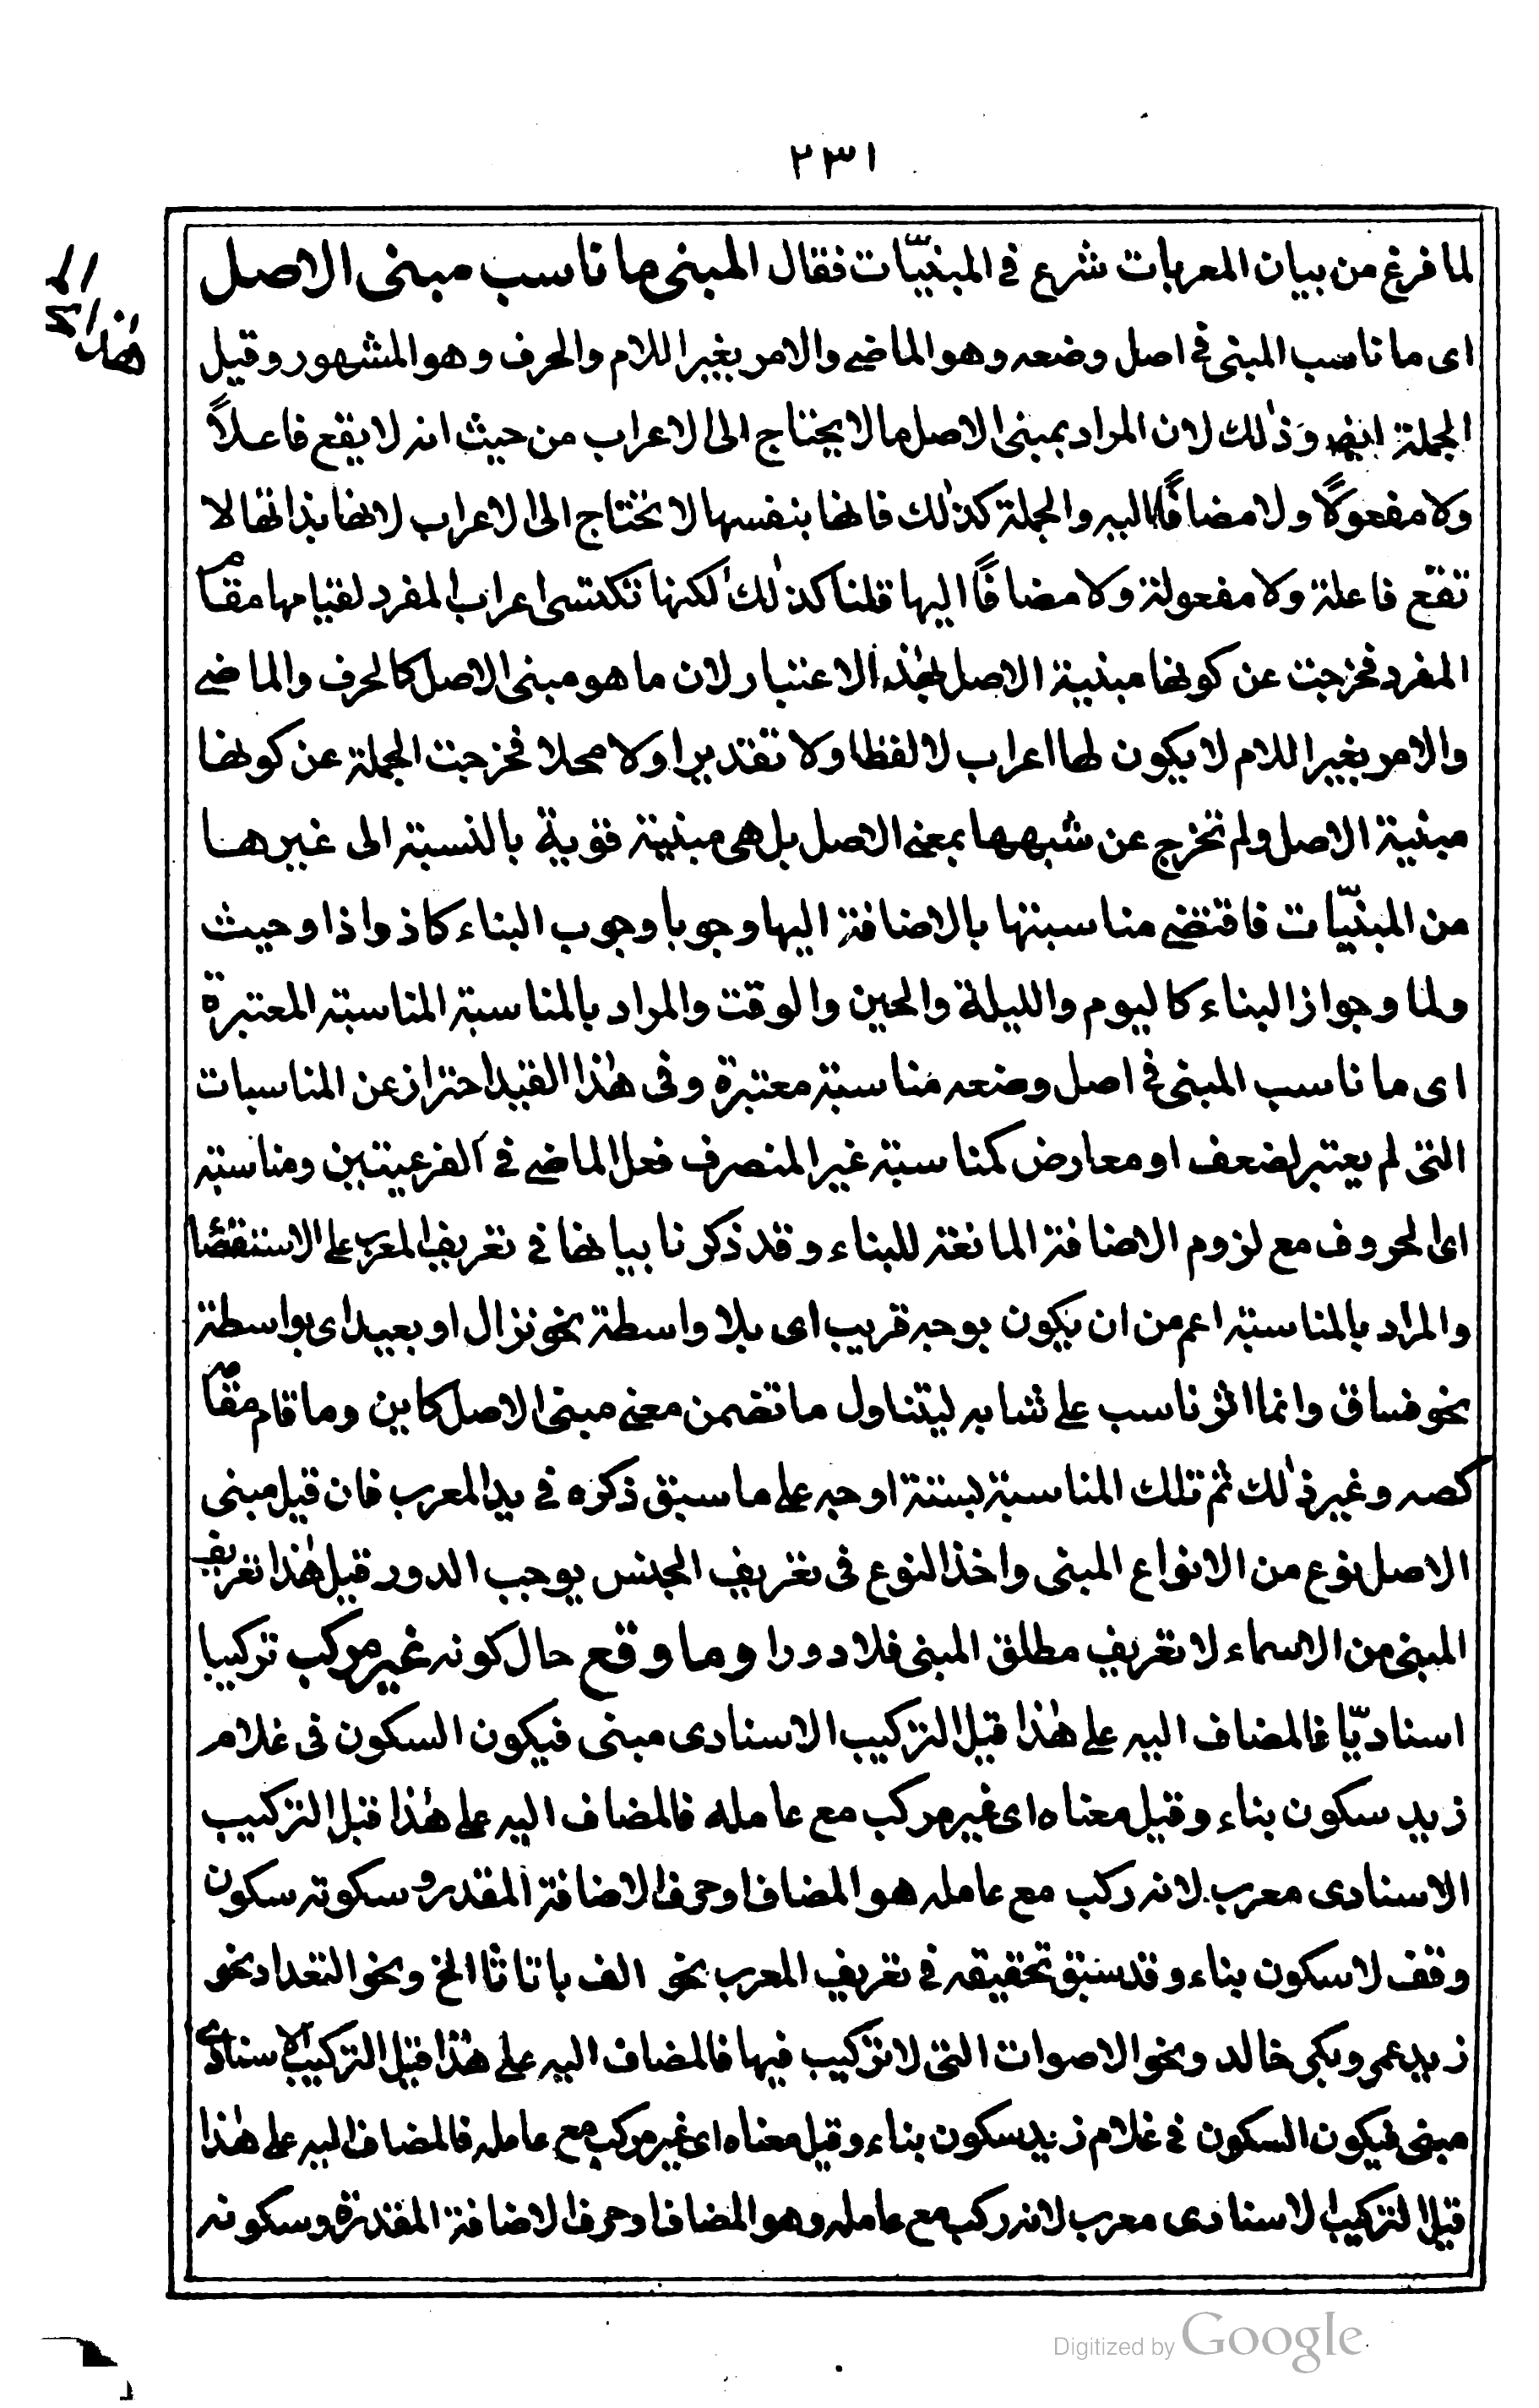 ٢٣١
لما فرغ من بيان المعربات شرع فى المبنيّات فقال المبنى ما ناسب مبنى الاصل
اى ما ناسب المبنى فى اصل وضعه وهو الماضى والامر بغير اللام والحرف وهو المشهور وقيل
الجملة ايضا وذٰلك لان المراد بمبنى الاصل ما لا يحتاج الى الاعراب من حيث انه لا يقع فاعلاً
ولا مفعولاً ولا مضافًا اليه والجملة كذٰلك فانها بنفسها لا تحتاج الى الاعراب لانها بذاتها لا
تقع فاعلة ولا مفعولة ولا مضافًا اليها قلنا كذٰلك لكنها تكتسى اعراب المفرد لقيامها مقام
المفرد فخرجت عن كونها مبنية الاصل بهٰذا الاعتبار لان ما هو مبنى الاصل كالحرف والماضى
والامر بغير اللام لا يكون لها اعراب لا لفظا ولا تقديرا ولا محلا فخرجت الجملة عن كونها
مبنية الاصل ولم تخرج عن شبهها بمعنى الاصل بل هى مبنية قوية بالنسبة الى غيرها
من المبنيّات فاقتضى مناسبتها بالاضافة اليها وجوبا وجوب البناء كاذ واذا وحيث
ولما وجواز البناء كاليوم والليلة والحين والوقت والمراد بالمناسبة المناسبة المعتبرة
اى ما ناسب المبنى فى اصل وضعه مناسبة معتبرة وفى هٰذا القيد احتراز عن المناسبات
التى لم يعتبر لضعف او معارض كمناسبة غير المنصرف فعل الماضى فى الفرعيتين ومناسبة
اى الحروف مع لزوم الاضافة المانعة للبناء وقد ذكرنا بيانها فى تعريف المعرب على الاستقصاء
والمراد بالمناسبة اعم من ان يكون بوجه قريب اى بلا واسطة نحو نزال او بعيد اى بواسطة
نحو فساق وانما اثر ناسب على شابه ليتناول ما تضمن معنى مبنى الاصل كاين وما قام مقامه
كصه وغير ذٰلك ثم تلك المناسبة بستة اوجه على ما سبق ذكره فى بدا المعرب فان قيل مبنى
الاصل نوع من الانواع المبنى واخذ النوع فى تعريف الجنس يوجب الدور قيل هٰذا تعريف
المبنى من الاسماء لا تعريف مطلق المبنى فلا دورا وما وقع حال كونه غير مركب تركيبا
اسناديّا فالمضاف اليه على هٰذا قبل التركيب الاسنادى مبنى فيكون السكون فى غلام
زيد سكون بناء وقيل معناه اى غير مركب مع عامله فالمضاف اليه على هٰذا قبل التركيب
الاسنادى معرب لانه ركب مع عامله هو المضاف او حرف الاضافة المقدر وسكوته سكون
وقف لا سكون بناء وقد سبق تحقيقه فى تعريف المعرب نحو الف با تا ثا الخ ونحو التعداد نحو
زيد عمرو بكر خالد ونحو الاصوات التى لا تركيب فيها فالمضاف اليه على هٰذا قبل التركيب الاسنادى
مبنى فيكون السكون فى غلام زيد سكون بناء وقيل معناه اى غير مركب مع عامله فالمضاف اليه على هٰذا
قبل التركيب الاسنادى معرب لانه ركب مع عامله وهو المضاف او حرف الاضافة المقدرة وسكونه
Digitized by Google